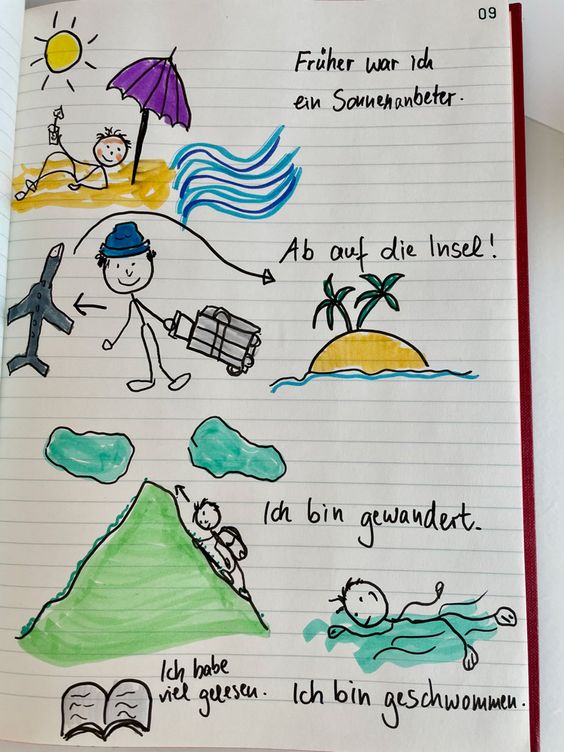 09
Früher war ich
ein Sonnenanbeter.
Ab auf die Insel!
Ich bin gewandert.
Ich habe
viel gelesen.
Ich bin geschwommen.